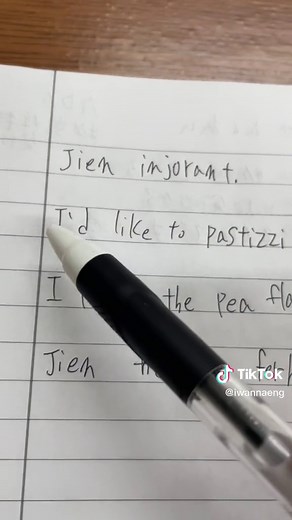 Jien injorant.
I'd like to pastizzi
I the pea
Jien
TikTok
@iwannaeng